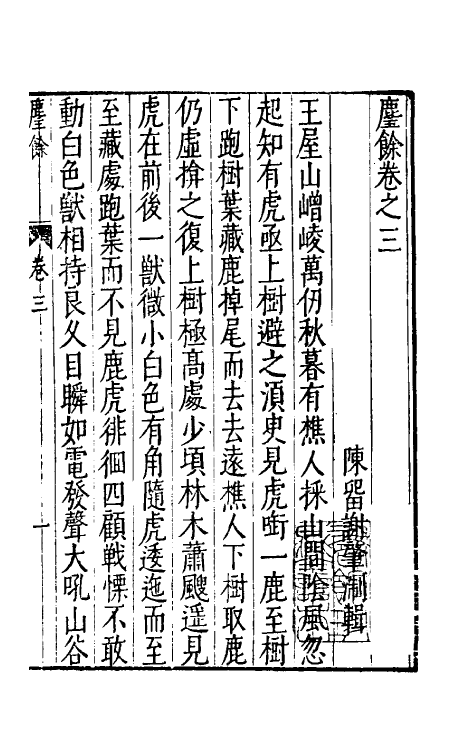 麈餘卷之三
陳留謝肇淛輯
王屋山嶒崚萬仞秋暮有樵人採山間陰風忽
起知有虎亟上樹避之須臾見虎啣一鹿至樹
下跑樹葉藏鹿掉尾而去去遠樵人下樹取鹿
仍虛揜之復上樹極高處少頃林木蕭颼遥見
虎在前後一獸微小白色有角隨虎逶迤而至
至藏處跑葉而不見鹿虎徘徊四顧戰慄不敢
動白色獸相持良久目瞬如電發聲大吼山谷
麈餘
卷三
一